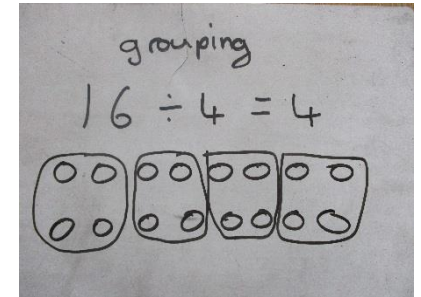 grouping
16 ÷ 4 = 4